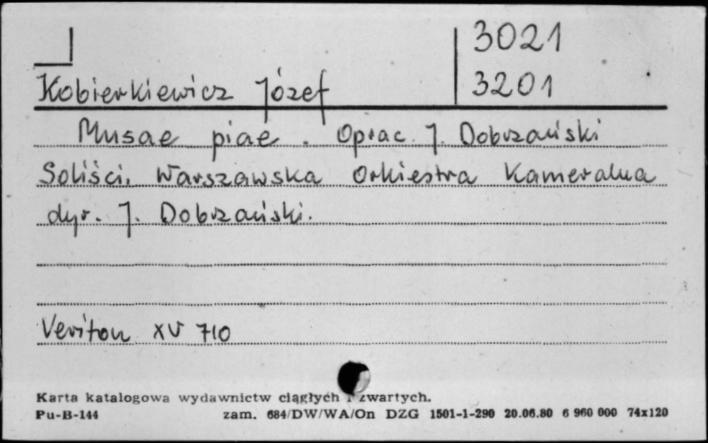 3021
Kobierkiewicz Józef 3201
Musae piae. Oprac. J. Dobrzański
Soliści, Warszawska Orkiestra Kameralna
dyr. J. Dobrzański.
Veriton XV 710
Karta katalogowa wydawnictw ciągłych i zwartych.
Pu-B-144 zam. 684/DW/WA/On DZG 1501-1-290 20.06.80 6 960 000 74x120